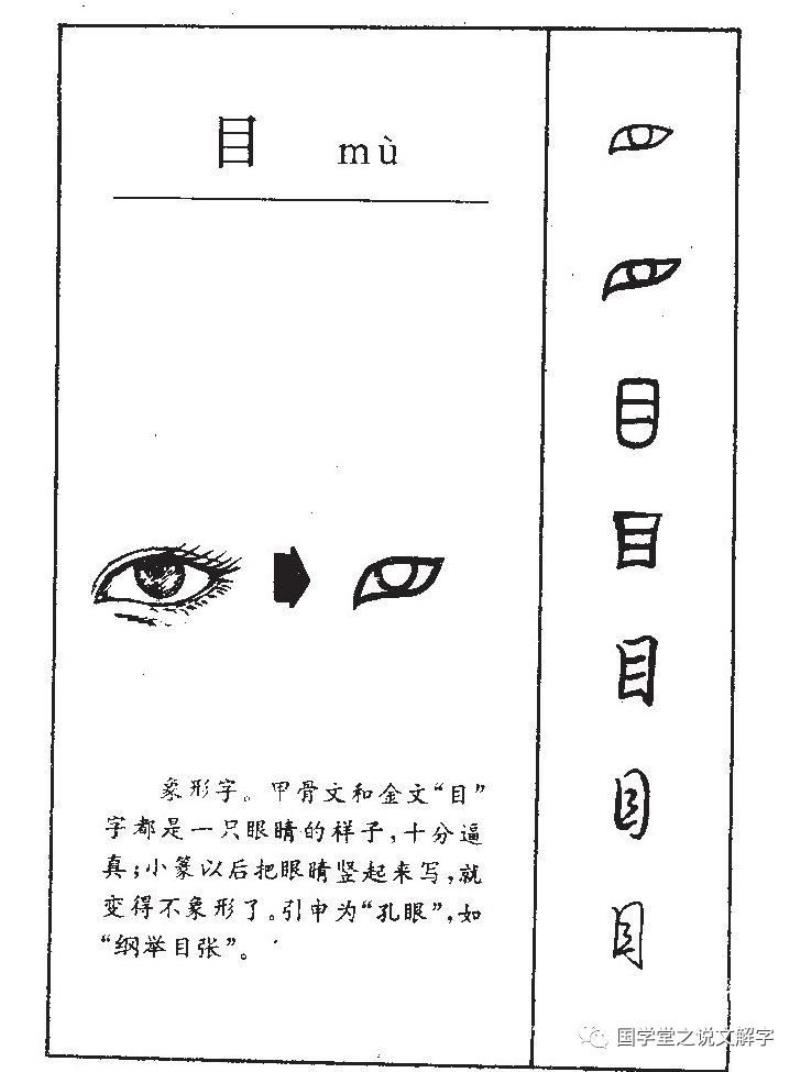 目 mù
象形字。甲骨文和金文“目”
字都是一只眼睛的样子，十分逼
真；小篆以后把眼睛竖起来写，就
变得不象形了。引申为“孔眼”，如
“纲举目张”。
目
目
目
目
目
目
目
国学堂之说文解字